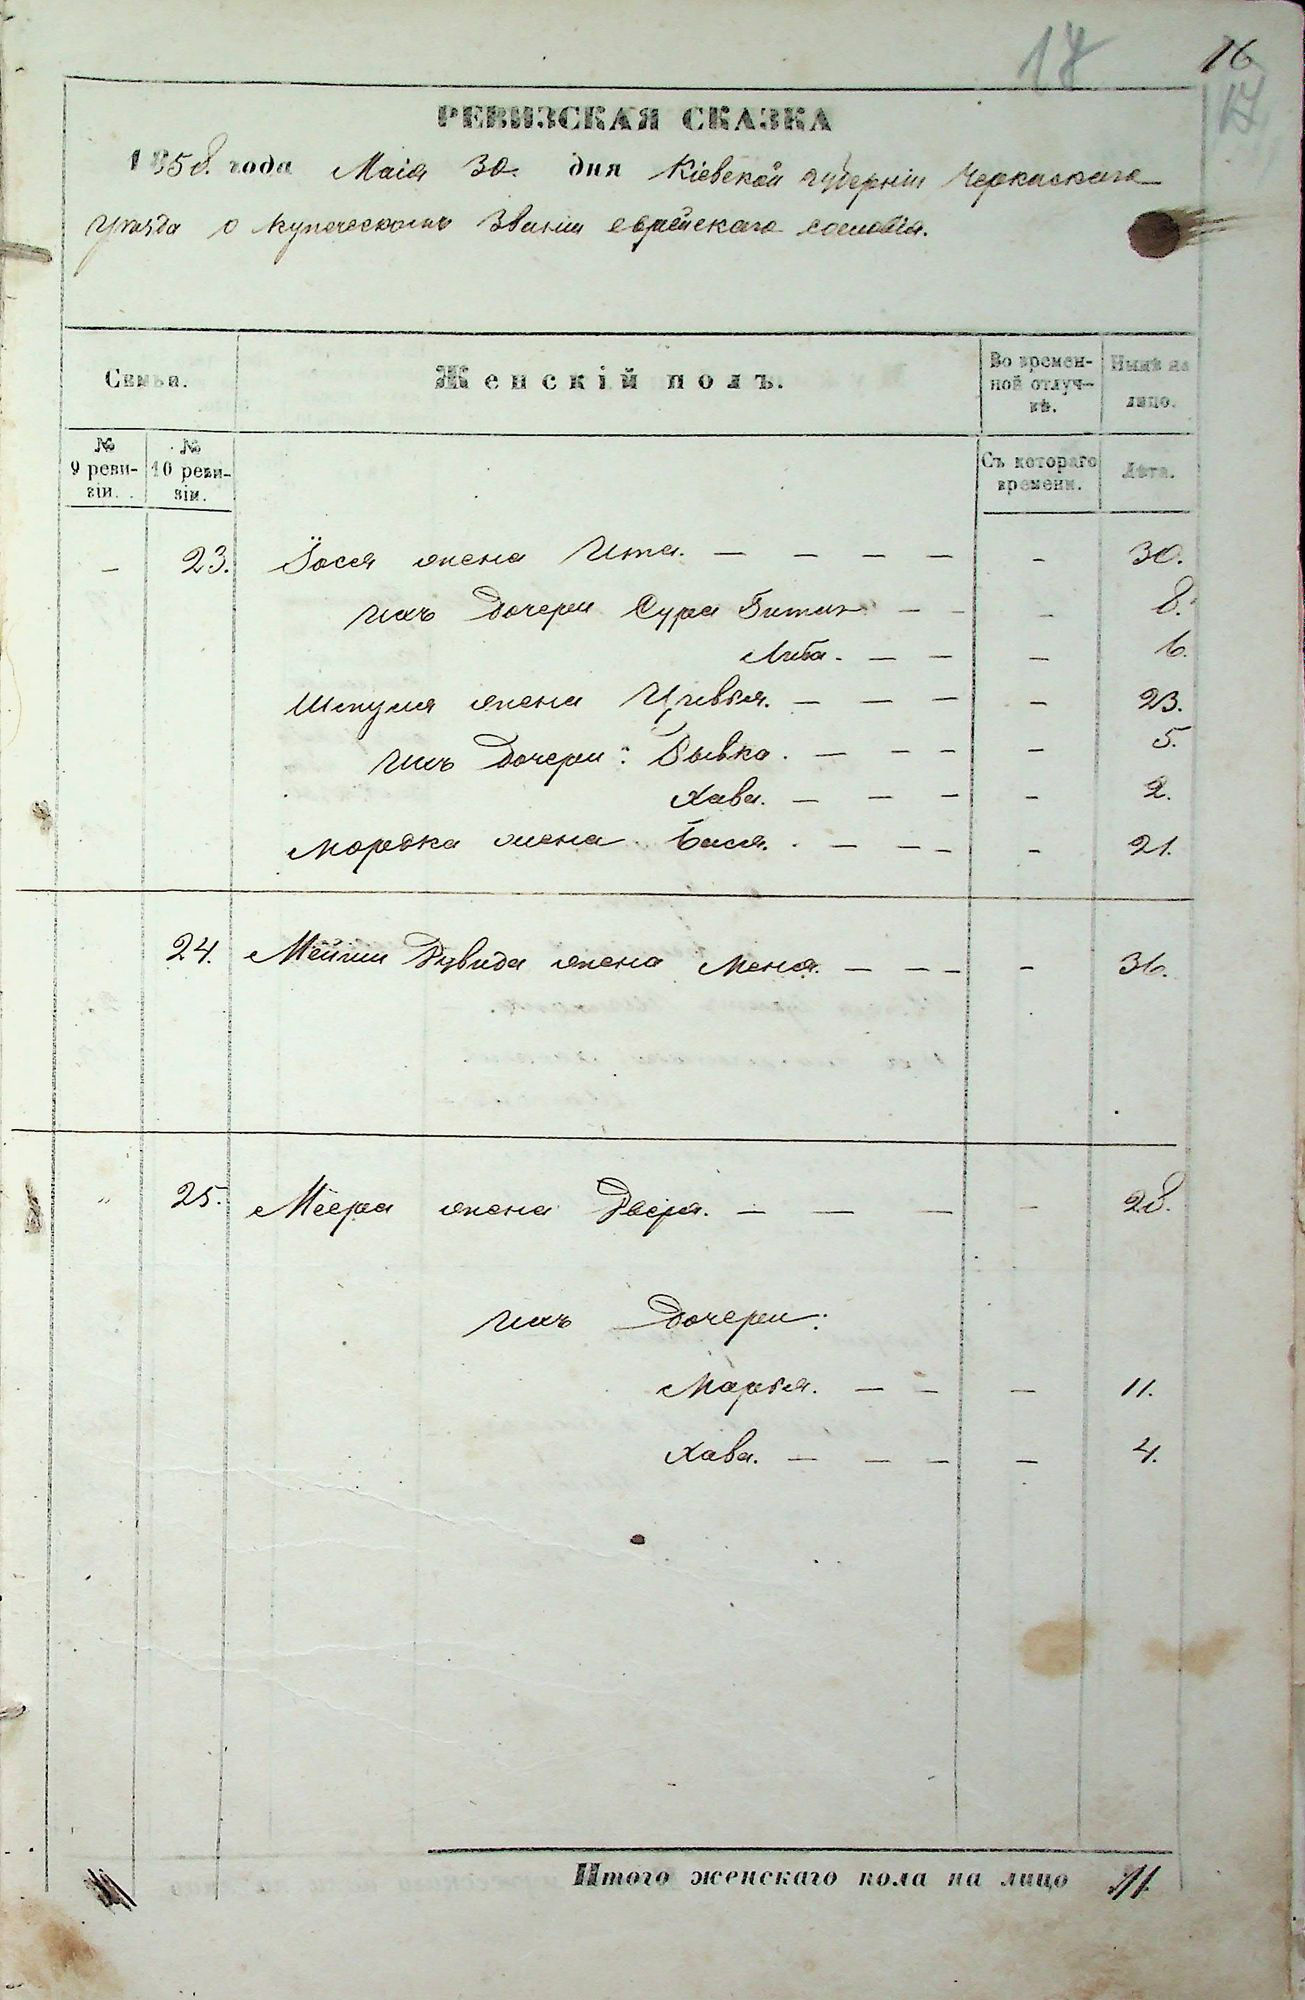 17 16
17
РЕВИЗСКАЯ СКАЗКА
1858. года Маія 30. дня Кіевской губерніи Черкаскаго
уѣзда о купеческомъ званіи еврейскаго сословія.
Семья. Женскій полъ. Во времен-ной отлуч-кѣ. Нынѣ на лицо.
№ 9 реви-зіи. № 10 реви-зіи. Съ котораго времени. Лѣта.
— 23. Іося жена Ита. — — — — - 30.
ихъ дочери Сура — — - 8.
Либа. — — — 6.
Шмуля жена Цивья. — — — — 23.
ихъ дочери: Рывка. — — — — 5.
Хава. — — — - 2.
Мордка жена Бася. — — — - 21.
24. Мейши Дувида жена Меня. — — — - 36.
" 25. Меера жена Двейра. — — — - 28.
ихъ дочери:
Марья. — — — 11.
Хава. — — — — 4.
Итого женскаго пола на лицо 11.